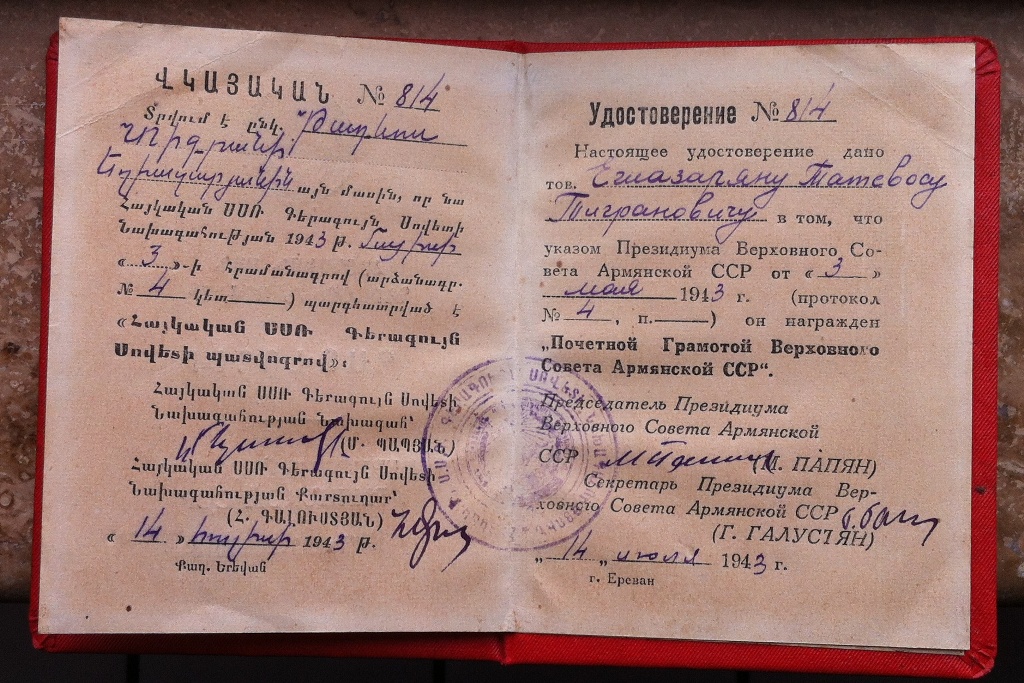 ՎԿԱՅԱԿԱՆ № 814
Տրվում է ընկ. Թադևոս
Տիգրանի
Եղիազարյանին այն մասին, որ նա
Հայկական ՍՍՌ Գերագույն Սովետի
Նախագահության 1943 թ. մայիսի
« 3 »-ի հրամանագրով (արձանագր.
№ 4 կետ ) պարգևատրված է
«Հայկական ՍՍՌ Գերագույն
Սովետի պատվոգրով»:
Հայկական ՍՍՌ Գերագույն Սովետի
Նախագահության Նախագահ՝
(Մ. ՊԱՊՅԱՆ)
Հայկական ՍՍՌ Գերագույն Սովետի
Նախագահության Քարտուղար՝
(Հ. ԳԱԼՈՒՍՏՅԱՆ)
« 14 » հուլիսի 1943 թ.
Քաղ. Երեվան
Удостоверение № 814
Настоящее удостоверение дано
тов. Егиазаряну Татевосу
Тиграновичу в том, что
указом Президиума Верховного Со-
вета Армянской ССР от « 3 »
мая 1943 г. (протокол
№ 4, п. ) он награжден
„Почетной Грамотой Верховного
Совета Армянской ССР“.
Председатель Президиума
Верховного Совета Армянской
ССР (М. ПАПЯН)
Секретарь Президиума Вер-
ховного Совета Армянской ССР
(Г. ГАЛУСТЯН)
„ 14 „ июля 1943 г.
г. Ереван